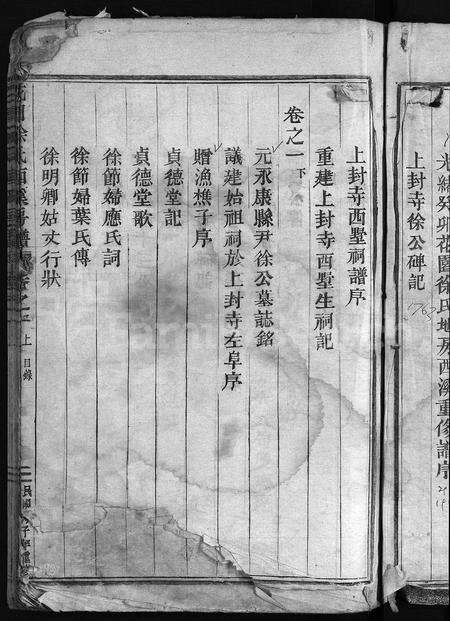 光緒癸卯花園徐氏地房西溪重修譜序
上封寺徐公碑記
1763
上封寺西墅祠譜序
重建上封寺西墅生祠記
卷之一下
元永康縣尹徐公墓誌銘
議建始祖祠於上封寺左阜序
贈漁樵子序
貞德堂記
貞德堂歌
徐節婦應氏詞
徐節婦葉氏傳
徐明卿姑丈行狀
卷之一上 目錄